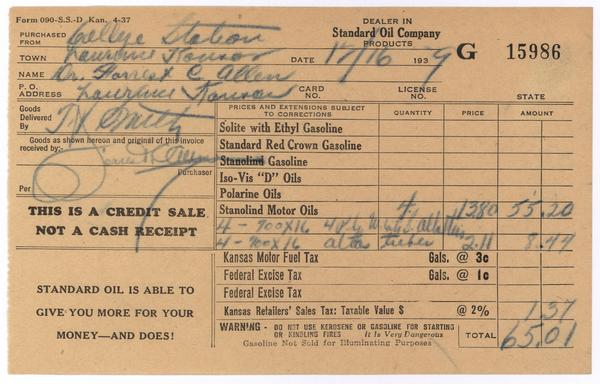 Form 090-S.S.-D Kan. 4-37
DEALER IN
Standard Oil Company
PRODUCTS
PURCHASED FROM College Station
TOWN Lawrence Kansas DATE 12/16 1939 G 15986
NAME Dr. Forrest C. Allen
P. O. ADDRESS Lawrence Kansas CARD NO. LICENSE NO. STATE
Goods Delivered By Smith
Goods as shown hereon and original of this invoice received by:-
Purchaser
Per
THIS IS A CREDIT SALE
NOT A CASH RECEIPT
STANDARD OIL IS ABLE TO
GIVE YOU MORE FOR YOUR
MONEY—AND DOES!
PRICES AND EXTENSIONS SUBJECT TO CORRECTIONS QUANTITY PRICE AMOUNT
Solite with Ethyl Gasoline
Standard Red Crown Gasoline
Stanolind Gasoline
Iso-Vis "D" Oils
Polarine Oils
Stanolind Motor Oils 4 13.80 55.20
4 - 700X16 4 ply W.
4 - 700X16 atlas tubes 2.11 8.44
Kansas Motor Fuel Tax Gals. @ 3c
Federal Excise Tax Gals. @ 1c
Federal Excise Tax
Kansas Retailers' Sales Tax: Taxable Value $ @ 2% 1.37
WARNING - DO NOT USE KEROSENE OR GASOLINE FOR STARTING OR KINDLING FIRES It Is Very Dangerous
Gasoline Not Sold for Illuminating Purposes
TOTAL 65.01